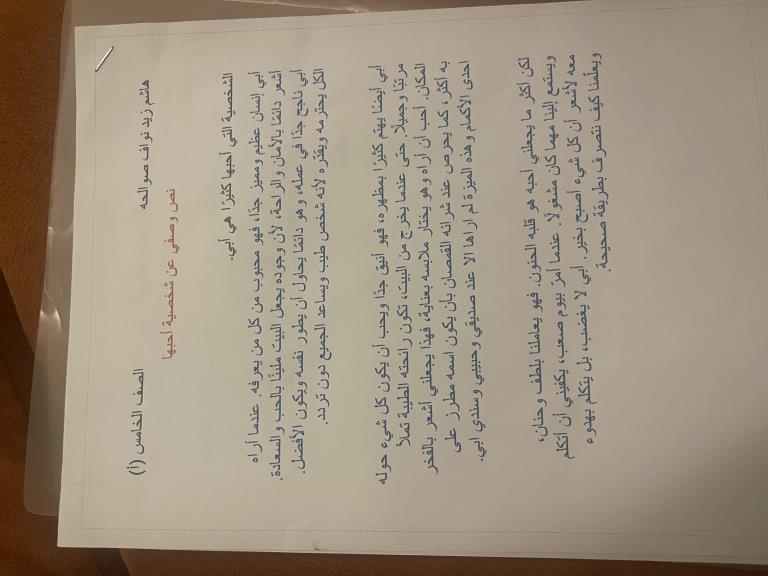 هاشم زيد نواف صوالحه
الصف الخامس (أ)
نص وصفي عن شخصية أحبها
الشخصية التي أحبها كثيرًا هي أبي.
أبي إنسان عظيم ومميز جدًا، فهو محبوب من كل من يعرفه. عندما أراه
أشعر دائمًا بالأمان والراحة، لأن وجوده يجعل البيت مليئًا بالحب والسعادة.
أبي ناجح جدًا في عمله، وهو دائمًا يحاول أن يطور نفسه ويكون الأفضل.
الكل يحترمه ويقدّره لأنه شخص طيب ويساعد الجميع دون تردد.
أبي أيضًا يهتم كثيرًا بمظهره، فهو أنيق جدًا ويحب أن يكون كل شيء حوله
مرتبًا وجميلًا. حتى عندما يخرج من البيت، تكون رائحته الطيبة تملأ
المكان. أحب أن أراه وهو يختار ملابسه بعناية، فهذا يجعلني أشعر بالفخر
به أكثر، كما يحرص عند شرائه القمصان بأن يكون اسمه مطرز على
احدى الأكمام وهذه الميزة لم اراها الا عند صديقي وحبيبي وسندي ابي.
لكن أكثر ما يجعلني أحبه هو قلبه الحنون. فهو يعاملنا بلطف وحنان،
ويستمع إلينا مهما كان مشغولًا. عندما أمرّ بيوم صعب، يكفيني أن أتكلم
معه لأشعر أن كل شيء أصبح بخير. أبي لا يغضب، بل يتكلم بهدوء
ويعلّمنا كيف نتصرف بطريقة صحيحة.